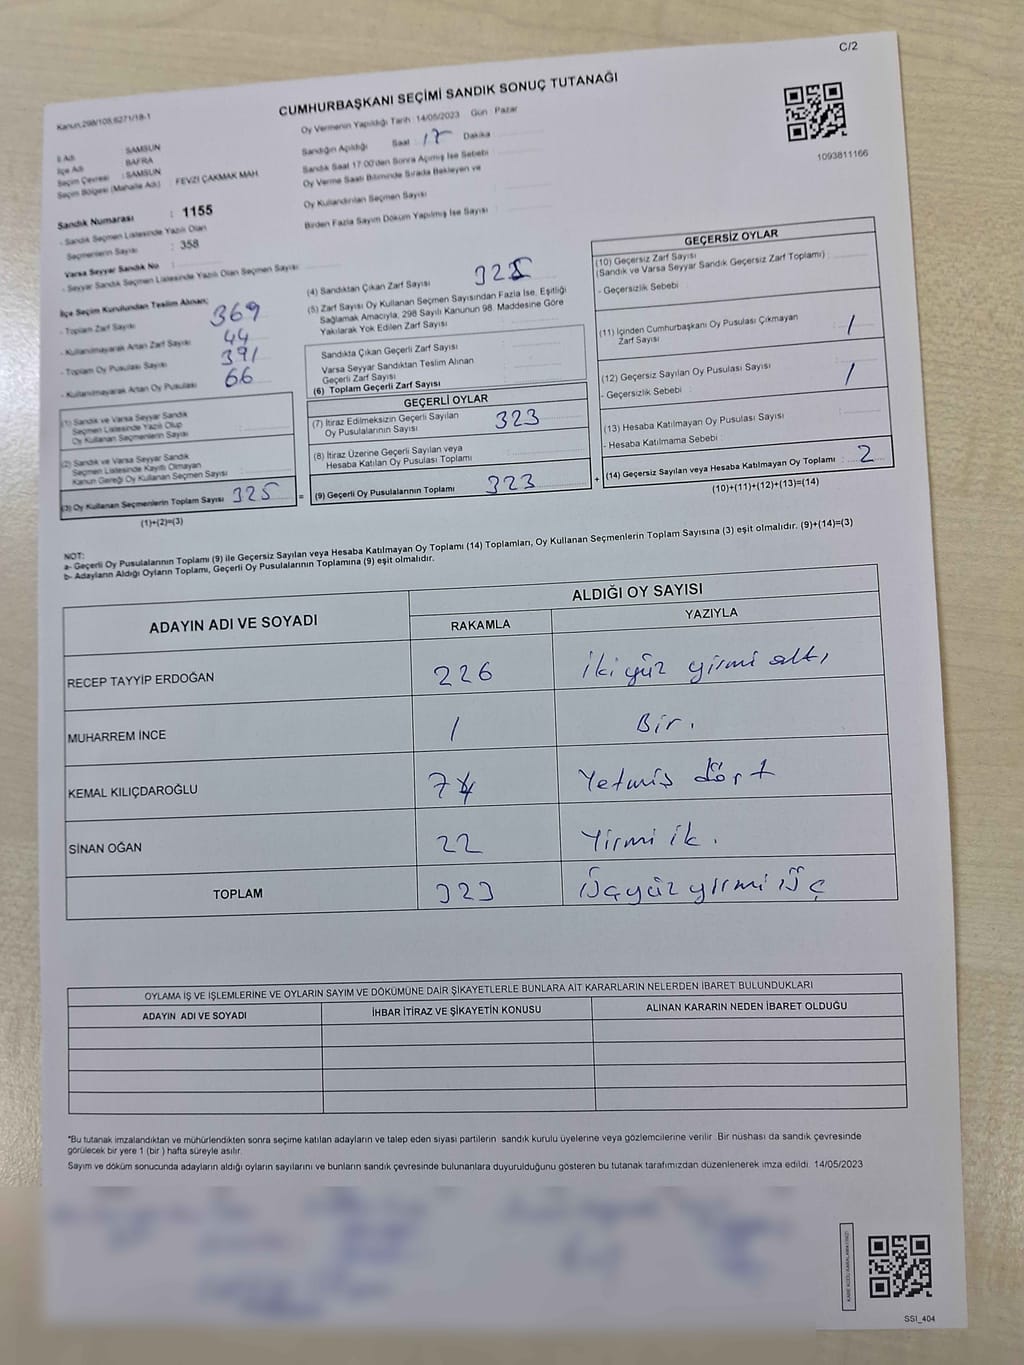 C/2
Kanun:298/108,6271/18-1
CUMHURBAŞKANI SEÇİMİ SANDIK SONUÇ TUTANAĞI
1093811166
İl Adı : SAMSUN
İlçe Adı : BAFRA
Seçim Çevresi : SAMSUN
Seçim Bölgesi (Mahalle Adı) : FEVZİ ÇAKMAK MAH
Sandık Numarası : 1155
- Sandık Seçmen Listesinde Yazılı Olan
Seçmenlerin Sayısı : 358
Varsa Seyyar Sandık No :
- Seyyar Sandık Seçmen Listesinde Yazılı Olan Seçmen Sayısı :
Oy Vermenin Yapıldığı Tarih : 14/05/2023 Gün : Pazar
Sandığın Açıldığı Saat : 17 Dakika
Sandık Saat 17:00'den Sonra Açımış İse Sebebi :
Oy Verme Saati Bitiminde Sırada Bekleyen ve
Oy Kullandırılan Seçmen Sayısı :
Birden Fazla Sayım Döküm Yapılmış İse Sayısı :
İlçe Seçim Kurulundan Teslim Alınan;
- Toplam Zarf Sayısı : 369
- Kullanılmayarak Artan Zarf Sayısı : 44
- Toplam Oy Pusulası Sayısı : 391
- Kullanılmayarak Artan Oy Pusulası : 66
(1) Sandık ve Varsa Seyyar Sandık
Seçmen Listesinde Yazılı Olup
Oy Kullanan Seçmenlerin Sayısı :
(2) Sandık ve Varsa Seyyar Sandık
Seçmen Listesinde Kayıtlı Olmayan
Kanun Gereği Oy Kullanan Seçmen Sayısı :
(3) Oy Kullanan Seçmenlerin Toplam Sayısı 325 =
(1)+(2)=(3)
(4) Sandıktan Çıkan Zarf Sayısı : 325
(5) Zarf Sayısı Oy Kullanan Seçmen Sayısından Fazla İse, Eşitliği
Sağlamak Amacıyla, 298 Sayılı Kanunun 98. Maddesine Göre
Yakılarak Yok Edilen Zarf Sayısı :
Sandıkta Çıkan Geçerli Zarf Sayısı :
Varsa Seyyar Sandıktan Teslim Alınan
Geçerli Zarf Sayısı :
(6) Toplam Geçerli Zarf Sayısı :
GEÇERLİ OYLAR
(7) İtiraz Edilmeksizin Geçerli Sayılan
Oy Pusulalarının Sayısı : 323
(8) İtiraz Üzerine Geçerli Sayılan veya
Hesaba Katılan Oy Pusulası Toplamı :
(9) Geçerli Oy Pusulalarının Toplamı : 323 +
GEÇERSİZ OYLAR
(10) Geçersiz Zarf Sayısı
(Sandık ve Varsa Seyyar Sandık Geçersiz Zarf Toplamı) :
- Geçersizlik Sebebi :
(11) İçinden Cumhurbaşkanı Oy Pusulası Çıkmayan
Zarf Sayısı : 1
(12) Geçersiz Sayılan Oy Pusulası Sayısı : 1
- Geçersizlik Sebebi :
(13) Hesaba Katılmayan Oy Pusulası Sayısı :
- Hesaba Katılmama Sebebi :
(14) Geçersiz Sayılan veya Hesaba Katılmayan Oy Toplamı : 2
(10)+(11)+(12)+(13)=(14)
NOT:
a- Geçerli Oy Pusulalarının Toplamı (9) ile Geçersiz Sayılan veya Hesaba Katılmayan Oy Toplamı (14) Toplamları, Oy Kullanan Seçmenlerin Toplam Sayısına (3) eşit olmalıdır. (9)+(14)=(3)
b- Adayların Aldığı Oyların Toplamı, Geçerli Oy Pusulalarının Toplamına (9) eşit olmalıdır.
ADAYIN ADI VE SOYADI
ALDIĞI OY SAYISI
RAKAMLA YAZIYLA
RECEP TAYYİP ERDOĞAN 226 iki yüz yirmi altı
MUHARREM İNCE 1 Bir.
KEMAL KILIÇDAROĞLU 74 Yetmiş dört
SİNAN OĞAN 22 Yirmi ik.
TOPLAM 323 Üçyüz yirmi üç
OYLAMA İŞ VE İŞLEMLERİNE VE OYLARIN SAYIM VE DÖKÜMÜNE DAİR ŞİKAYETLERLE BUNLARA AİT KARARLARIN NELERDEN İBARET BULUNDUKLARI
ADAYIN ADI VE SOYADI İHBAR İTİRAZ VE ŞİKAYETİN KONUSU ALINAN KARARIN NEDEN İBARET OLDUĞU
*Bu tutanak imzalandıktan ve mühürlendikten sonra seçime katılan adayların ve talep eden siyasi partilerin sandık kurulu üyelerine veya gözlemcilerine verilir. Bir nüshası da sandık çevresinde
görülecek bir yere 1 (bir ) hafta süreyle asılır.
Sayım ve döküm sonucunda adayların aldığı oyların sayılarını ve bunların sandık çevresinde bulunanlara duyurulduğunu gösteren bu tutanak tarafımızdan düzenlenerek imza edildi. 14/05/2023
SSI_404